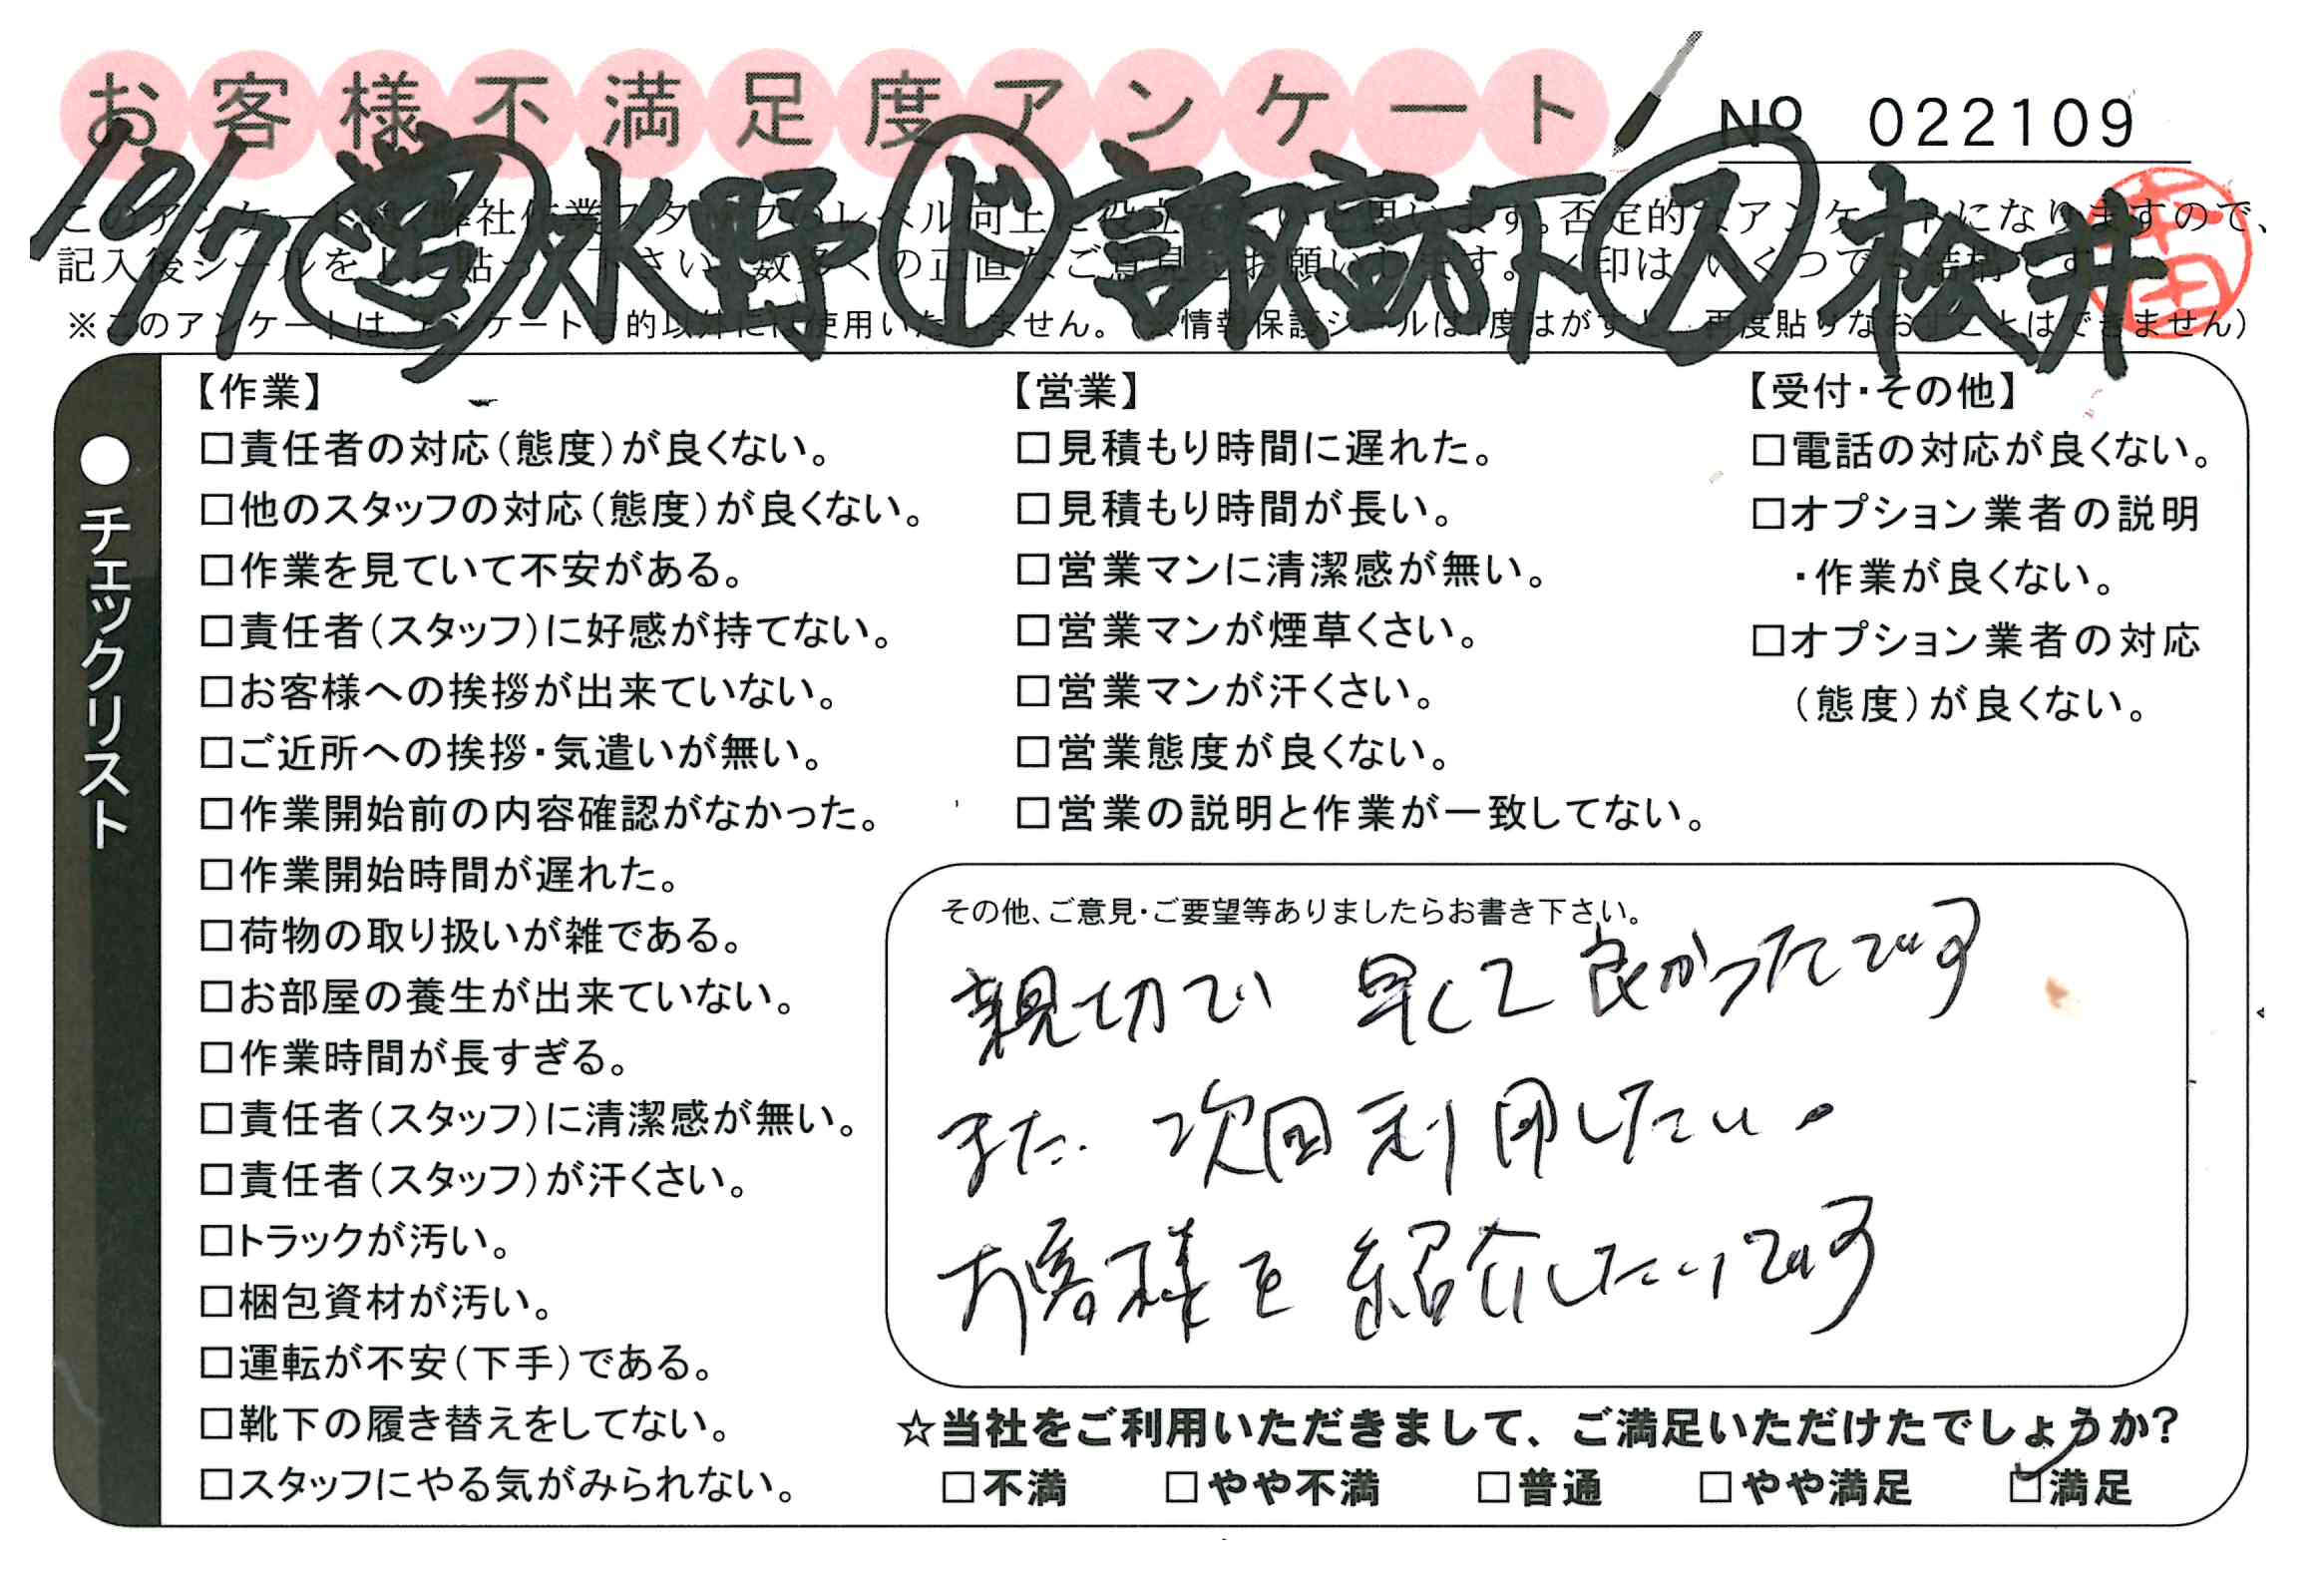 お客様不満足度アンケート
No 022109
10/7 営 水野 ド 諏訪下 ス 松井
※このアンケートは、アンケート目的以外には使用いたしません。
チェックリスト
【作業】
□責任者の対応(態度)が良くない。
□他のスタッフの対応(態度)が良くない。
□作業を見ていて不安がある。
□責任者(スタッフ)に好感が持てない。
□お客様への挨拶が出来ていない。
□ご近所への挨拶・気遣いが無い。
□作業開始前の内容確認がなかった。
□作業開始時間が遅れた。
□荷物の取り扱いが雑である。
□お部屋の養生が出来ていない。
□作業時間が長すぎる。
□責任者(スタッフ)に清潔感が無い。
□責任者(スタッフ)が汗くさい。
□トラックが汚い。
□梱包資材が汚い。
□運転が不安(下手)である。
□靴下の履き替えをしてない。
□スタッフにやる気がみられない。
【営業】
□見積もり時間に遅れた。
□見積もり時間が長い。
□営業マンに清潔感が無い。
□営業マンが煙草くさい。
□営業マンが汗くさい。
□営業態度が良くない。
□営業の説明と作業が一致してない。
【受付・その他】
□電話の対応が良くない。
□オプション業者の説明
・作業が良くない。
□オプション業者の対応
(態度)が良くない。
その他、ご意見・ご要望等ありましたらお書き下さい。
親切で 早くて良かったです
また 次回利用したい。
お客様を紹介したいです
☆当社をご利用いただきまして、ご満足いただけたでしょうか?
□不満 □やや不満 □普通 □やや満足 ☑満足